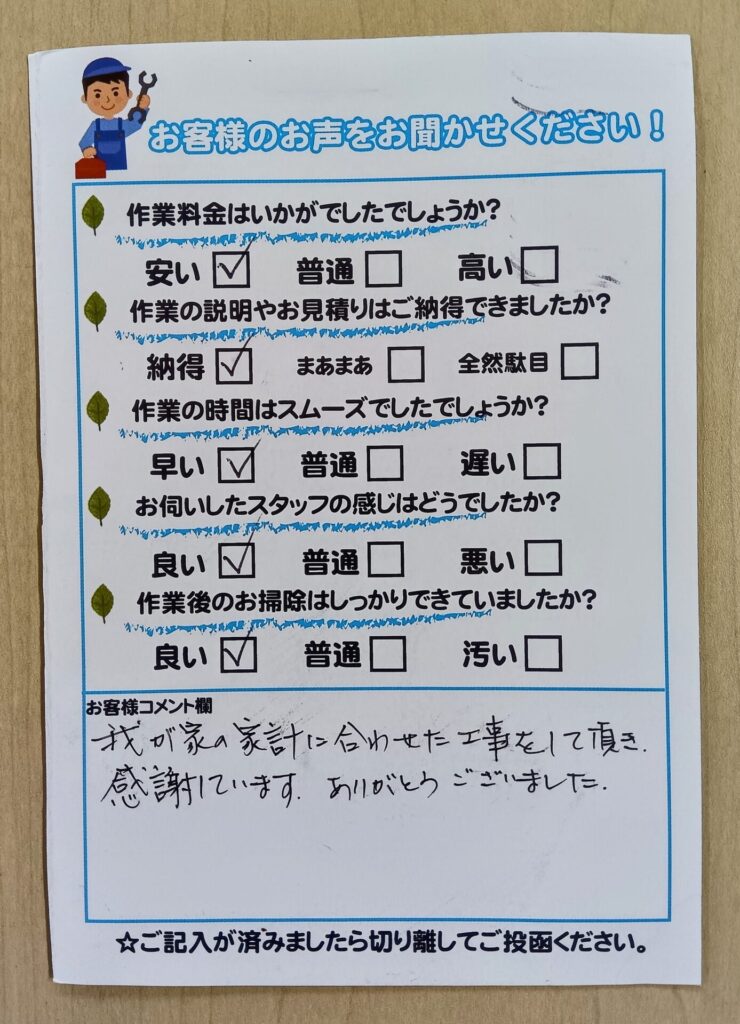 お客様のお声をお聞かせください！
作業料金はいかがでしたでしょうか？
安い ☑ 普通 □ 高い □
作業の説明やお見積りはご納得できましたか？
納得 ☑ まあまあ □ 全然駄目 □
作業の時間はスムーズでしたでしょうか？
早い ☑ 普通 □ 遅い □
お伺いしたスタッフの感じはどうでしたか？
良い ☑ 普通 □ 悪い □
作業後のお掃除はしっかりできていましたか？
良い ☑ 普通 □ 汚い □
お客様コメント欄
我が家の家計に合わせた工事をして頂き、
感謝しています。ありがとうございました。
☆ご記入が済みましたら切り離してご投函ください。